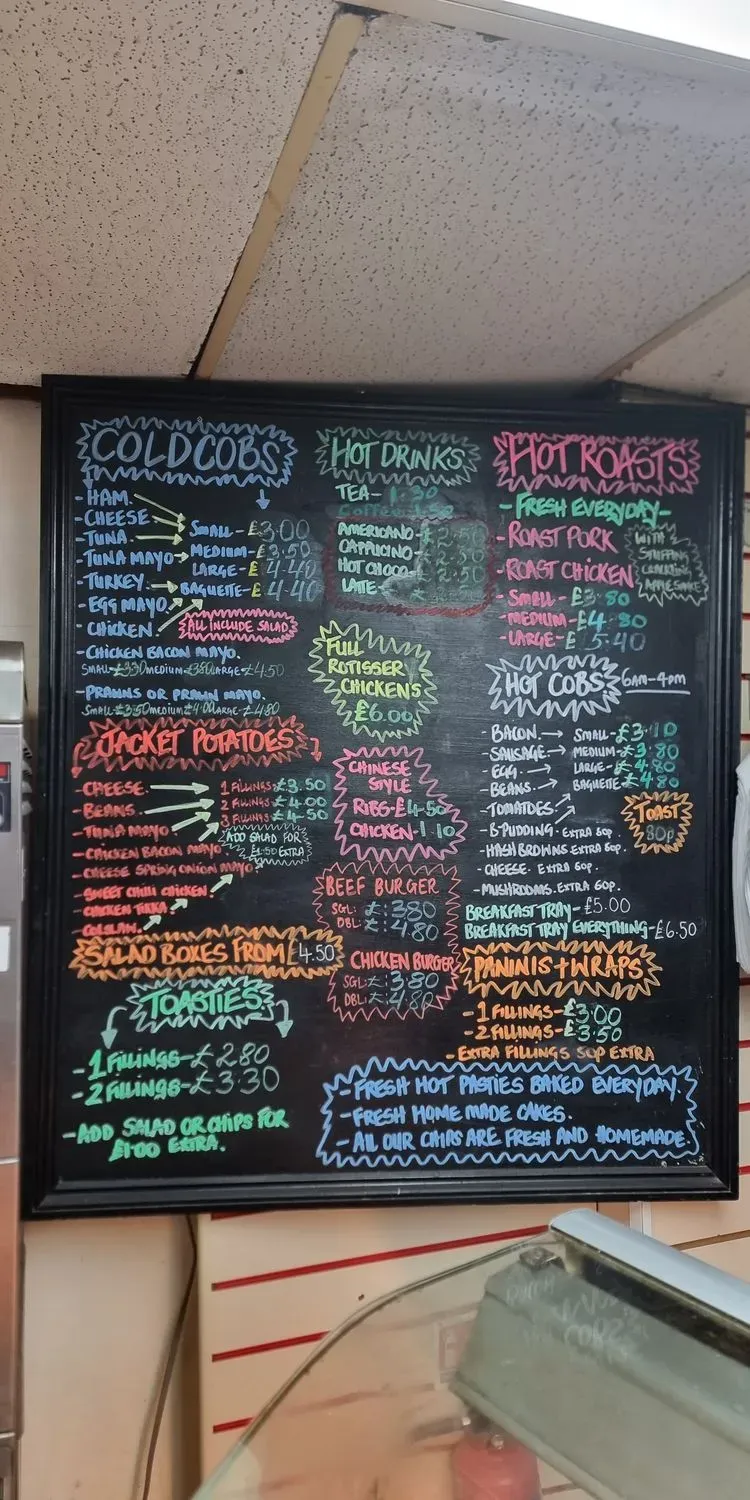 COLD COBS
- HAM
- CHEESE
- TUNA
- TUNA MAYO
- TURKEY
- EGG MAYO
- CHICKEN
SMALL - £3.00
MEDIUM - £3.50
LARGE - £4.40
BAGUETTE - £4.40
ALL INCLUDE SALAD
- CHICKEN BACON MAYO.
SMALL £3.30 MEDIUM £3.80 LARGE £4.50
- PRAWNS OR PRAWN MAYO.
SMALL £3.50 MEDIUM £4.00 LARGE £4.80
JACKET POTATOES
- CHEESE
- BEANS
- TUNA MAYO
- CHICKEN BACON MAYO
- CHEESE SPRING ONION MAYO
- SWEET CHILLI CHICKEN
- CHICKEN TIKKA
- COLSLAW
1 FILLINGS £3.50
2 FILLINGS £4.00
3 FILLINGS £4.50
ADD SALAD FOR
EXTRA
SALAD BOXES FROM £4.50
TOASTIES
- 1 FILLINGS - £2.80
- 2 FILLINGS - £3.30
- ADD SALAD OR CHIPS FOR
£1.00 EXTRA.
HOT DRINKS
TEA - 1.30
Coffee 1.50
AMERICANO - £2.50
CAPPUCINO - £2.50
HOT CHOCO - £2.50
LATTE -
FULL
ROTISSER
CHICKENS
£6.00
CHINESE
STYLE
RIBS - £4.50
CHICKEN - 1.10
BEEF BURGER
SGL: £3.80
DBL: £4.80
CHICKEN BURGER
SGL: £3.80
DBL: £4.80
HOT ROASTS
- FRESH EVERYDAY -
- ROAST PORK
- ROAST CHICKEN
WITH
STUFFING
CRACKLING
APPLE SAUCE
- SMALL - £3.80
- MEDIUM - £4.80
- LARGE - £5.40
HOT COBS 6am - 4pm
- BACON
- SAUSAGE
- EGG
- BEANS
- TOMATOES
SMALL - £3.10
MEDIUM - £3.80
LARGE - £4.80
BAGUETTE £4.80
- B-PUDDING - EXTRA 80p.
- HASH BROWNS EXTRA 60p.
- CHEESE. EXTRA 60p.
- MUSHROOMS. EXTRA 60p.
TOAST
80p
BREAKFAST TRAY - £5.00
BREAKFAST TRAY EVERYTHING - £6.50
PANINIS + WRAPS
- 1 FILLINGS - £3.00
- 2 FILLINGS - £3.50
- EXTRA FILLINGS 50P EXTRA
- FRESH HOT PASTIES BAKED EVERYDAY.
- FRESH HOME MADE CAKES.
- ALL OUR CHIPS ARE FRESH AND HOMEMADE.